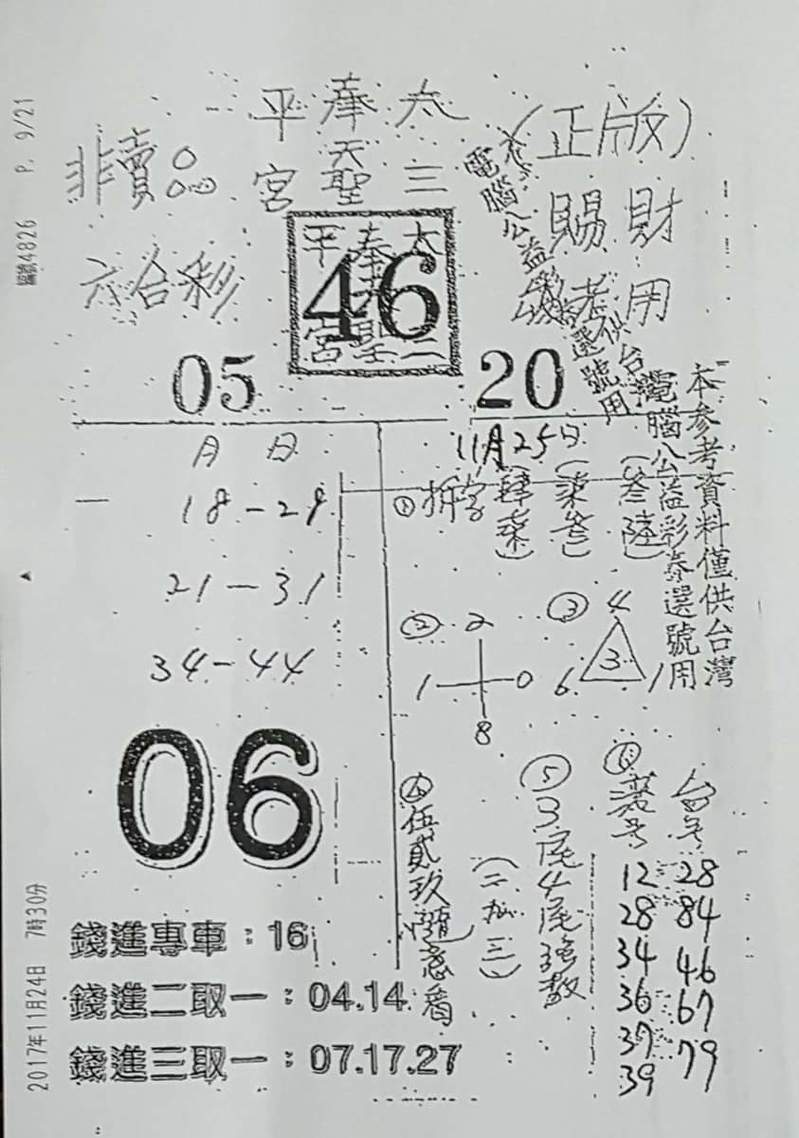 編號4826 P. 9/21
2017年11月24日 7時30分
非賣品
六合彩
太三
奉天聖
平宮
(正版)
財用
賜考
太三
奉天聖
平宮
46
05
20
本參考資料僅供台灣
電腦公益彩券選號用
月 日
18-29
21-31
34-44
06
11月25日
① 拆字 (肆柒) (柒叁) (叁陸)
② 2
1 0
8
③ 4
3
6 1
④ 伍貳玖隨意看
⑤ 3尾4尾強數
(二加三)
⑥
港号
12
28
34
36
37
39
台号
28
84
46
67
79
錢進專車:16
錢進二取一:04.14
錢進三取一:07.17.27